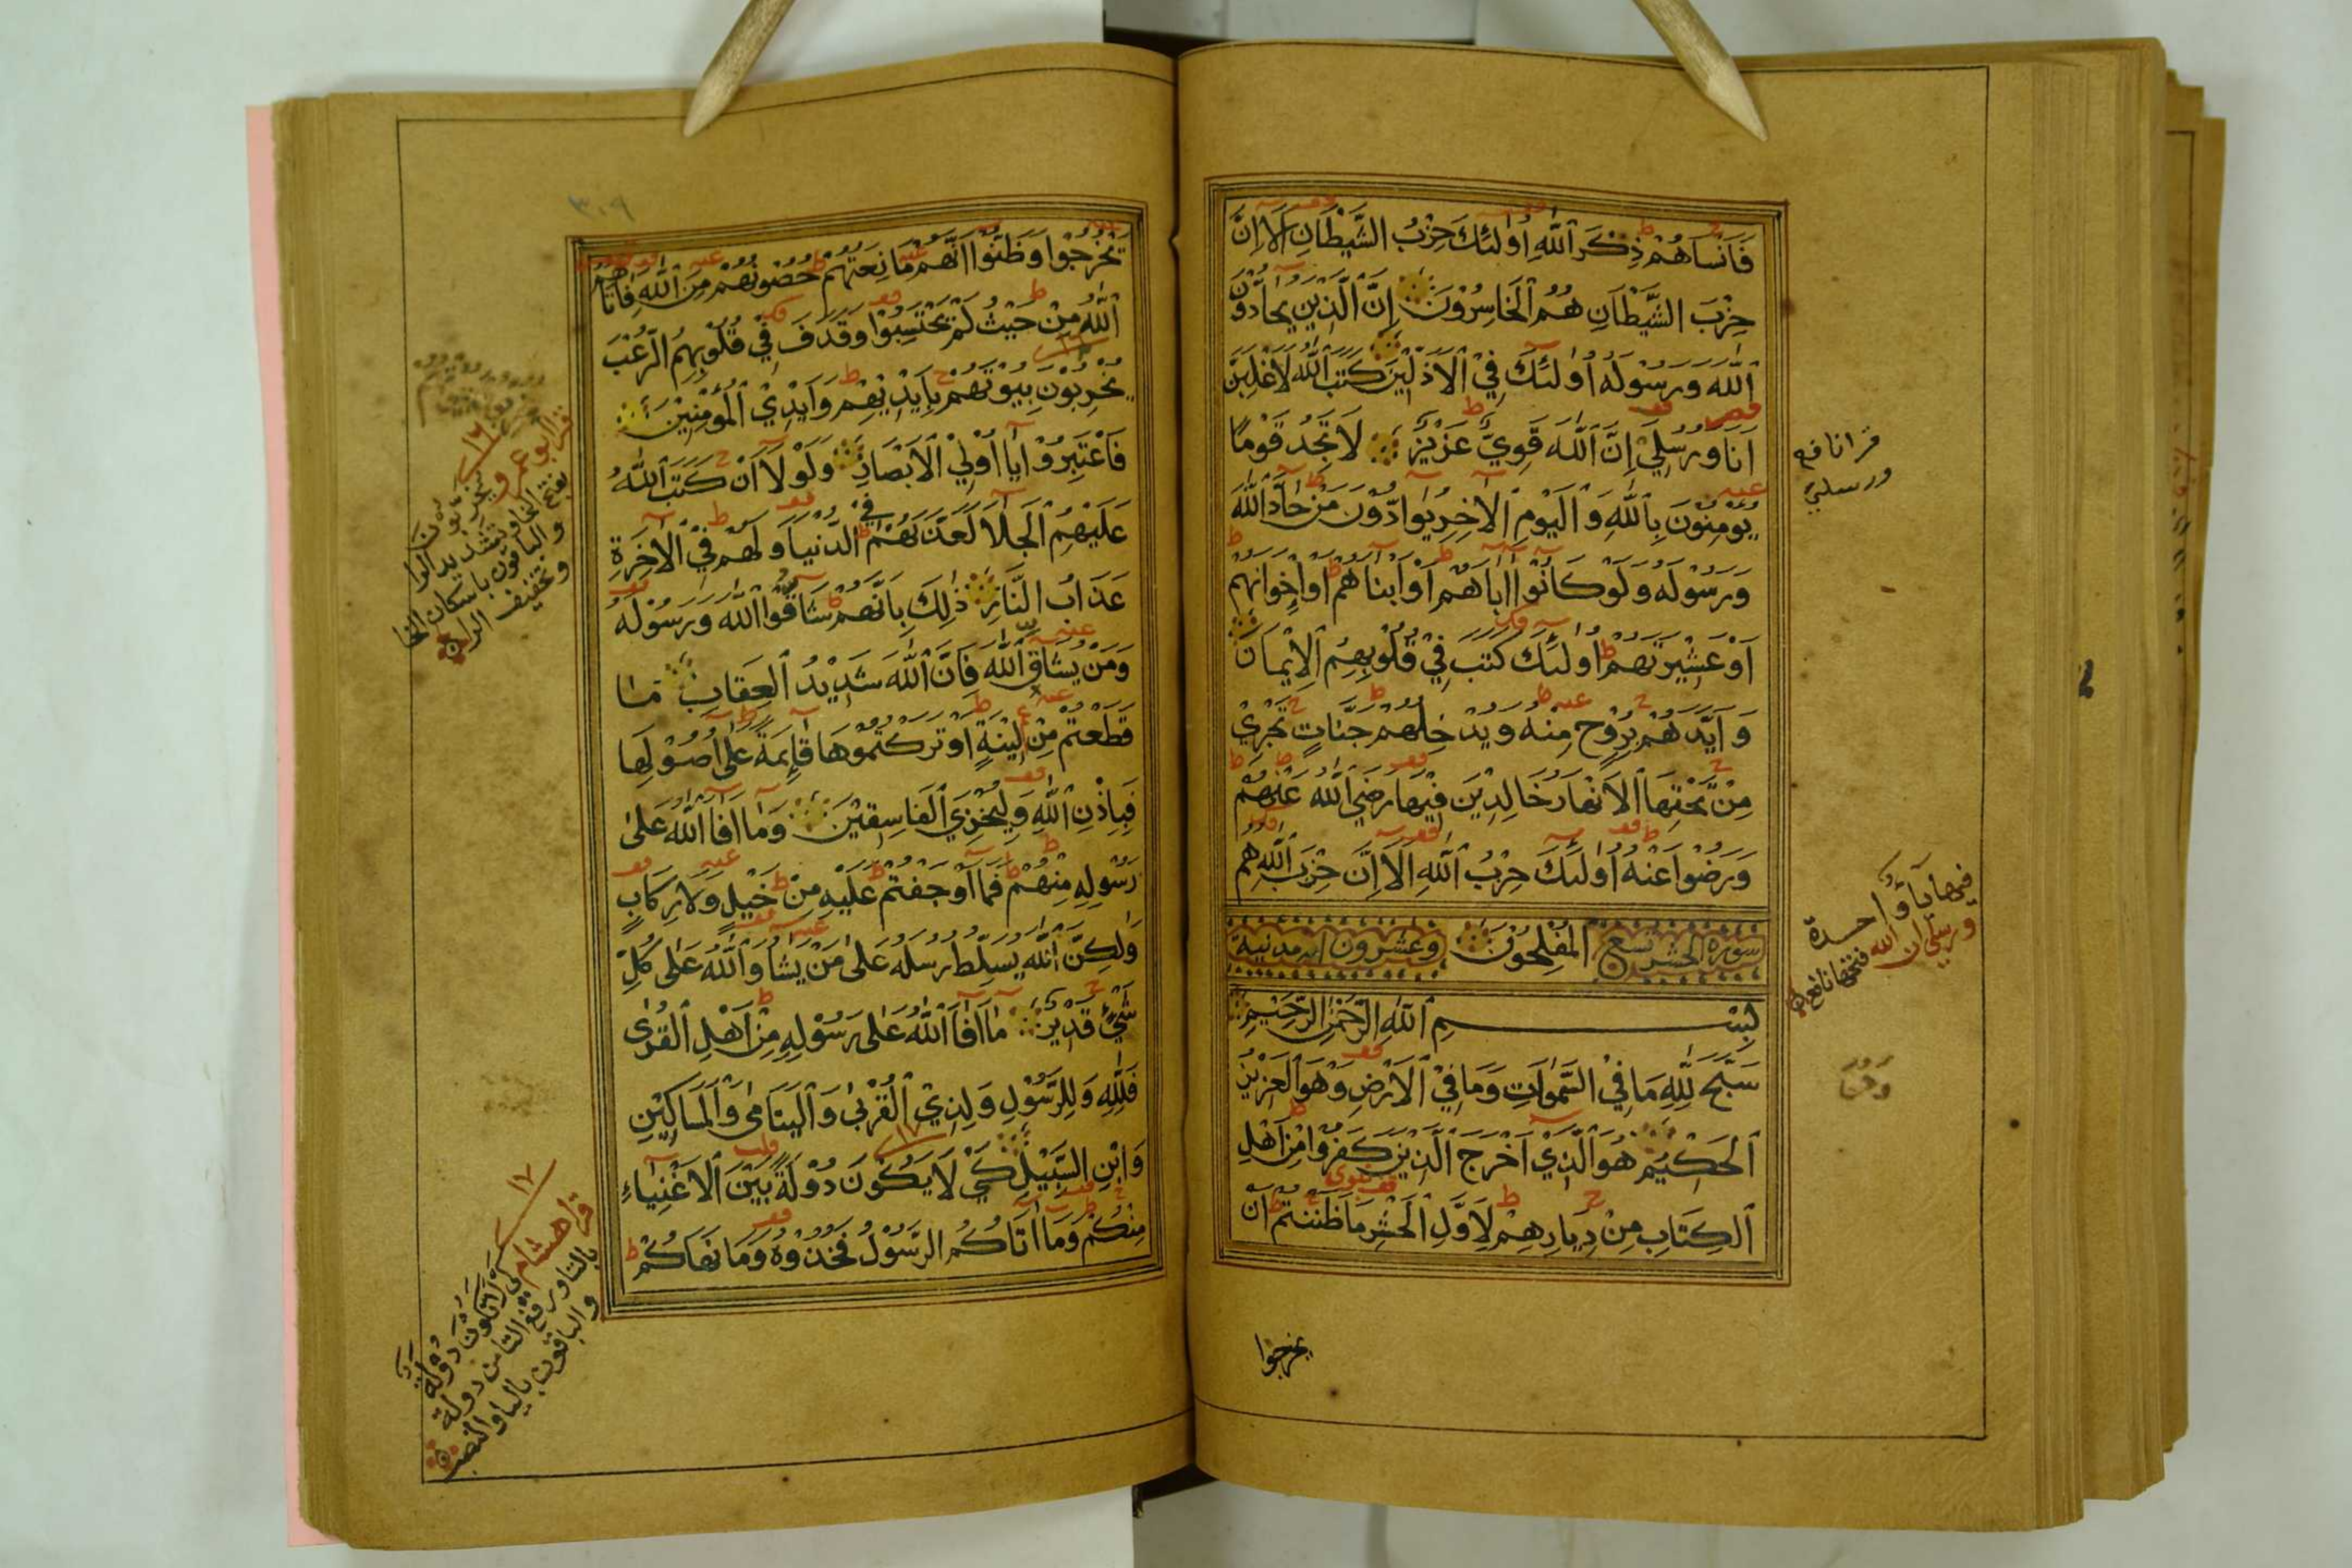 فَأَنْسَاهُمْ ذِكْرَ ٱللَّهِ أُولَٰئِكَ حِزْبُ الشَّيْطَانِ أَلَا إِنَّ
حِزْبَ الشَّيْطَانِ هُمُ ٱلْخَاسِرُونَ إِنَّ ٱلَّذِينَ يُحَادُّونَ
ٱللَّهَ وَرَسُولَهُ أُولَٰئِكَ فِي ٱلْأَذَلِّينَ كَتَبَ ٱللَّهُ لَأَغْلِبَنَّ
أَنَا وَرُسُلِي إِنَّ ٱللَّهَ قَوِيٌّ عَزِيزٌ لَا تَجِدُ قَوْمًا
يُؤْمِنُونَ بِٱللَّهِ وَٱلْيَوْمِ ٱلْآخِرِ يُوَادُّونَ مَنْ حَادَّ ٱللَّهَ
وَرَسُولَهُ وَلَوْ كَانُوا آبَاهُمْ أَوْ أَبْنَاهُمْ أَوْ إِخْوَانَهُمْ
أَوْ عَشِيرَتَهُمْ أُولَٰئِكَ كَتَبَ فِي قُلُوبِهِمُ ٱلْإِيمَانَ
وَأَيَّدَهُمْ بِرُوحٍ مِنْهُ وَيُدْخِلُهُمْ جَنَّاتٍ تَجْرِي
مِنْ تَحْتِهَا ٱلْأَنْهَارُ خَالِدِينَ فِيهَا رَضِيَ ٱللَّهُ عَنْهُمْ
وَرَضُوا عَنْهُ أُولَٰئِكَ حِزْبُ ٱللَّهِ أَلَا إِنَّ حِزْبَ ٱللَّهِ هُمُ
سورة الحشر تسع ٱلْمُفْلِحُونَ وعشرون آية مدنية
بِسْمِ ٱللَّهِ الرَّحْمَٰنِ الرَّحِيمِ
سَبَّحَ لِلَّهِ مَا فِي السَّمَوَاتِ وَمَا فِي ٱلْأَرْضِ وَهُوَ ٱلْعَزِيزُ
ٱلْحَكِيمُ هُوَ ٱلَّذِي أَخْرَجَ ٱلَّذِينَ كَفَرُوا مِنْ أَهْلِ
ٱلْكِتَابِ مِنْ دِيَارِهِمْ لِأَوَّلِ ٱلْحَشْرِ مَا ظَنَنْتُمْ أَنْ
يخرجوا
قرا نافع
ورسلي
فيها ياء واحدة
ورسلي ان الله فتحها نافع
٣٠٩
يَخْرُجُوا وَظَنُّوا أَنَّهُمْ مَانِعَتُهُمْ حُصُونُهُمْ مِنَ ٱللَّهِ فَأَتَاهُمُ
ٱللَّهُ مِنْ حَيْثُ لَمْ يَحْتَسِبُوا وَقَذَفَ فِي قُلُوبِهِمُ الرُّعْبَ
يُخْرِبُونَ بُيُوتَهُمْ بِأَيْدِيهِمْ وَأَيْدِي ٱلْمُؤْمِنِينَ
فَٱعْتَبِرُوا يَا أُولِي ٱلْأَبْصَارِ وَلَوْلَا أَنْ كَتَبَ ٱللَّهُ
عَلَيْهِمُ ٱلْجَلَاءَ لَعَذَّبَهُمْ فِي الدُّنْيَا وَلَهُمْ فِي ٱلْآخِرَةِ
عَذَابُ النَّارِ ذَٰلِكَ بِأَنَّهُمْ شَاقُّوا ٱللَّهَ وَرَسُولَهُ
وَمَنْ يُشَاقِّ ٱللَّهَ فَإِنَّ ٱللَّهَ شَدِيدُ ٱلْعِقَابِ مَا
قَطَعْتُمْ مِنْ لِينَةٍ أَوْ تَرَكْتُمُوهَا قَائِمَةً عَلَى أُصُولِهَا
فَبِإِذْنِ ٱللَّهِ وَلِيُخْزِيَ ٱلْفَاسِقِينَ وَمَا أَفَاءَ ٱللَّهُ عَلَى
رَسُولِهِ مِنْهُمْ فَمَا أَوْجَفْتُمْ عَلَيْهِ مِنْ خَيْلٍ وَلَا رِكَابٍ
وَلَٰكِنَّ ٱللَّهَ يُسَلِّطُ رُسُلَهُ عَلَى مَنْ يَشَاءُ وَٱللَّهُ عَلَى كُلِّ
شَيْءٍ قَدِيرٌ مَا أَفَاءَ ٱللَّهُ عَلَى رَسُولِهِ مِنْ أَهْلِ ٱلْقُرَى
فَلِلَّهِ وَلِلرَّسُولِ وَلِذِي ٱلْقُرْبَى وَٱلْيَتَامَى وَٱلْمَسَاكِينِ
وَٱبْنِ السَّبِيلِ كَيْ لَا يَكُونَ دُولَةً بَيْنَ ٱلْأَغْنِيَاءِ
مِنْكُمْ وَمَا آتَاكُمُ الرَّسُولُ فَخُذُوهُ وَمَا نَهَاكُمْ
١٦
قرا ابو عمرو يخرّبون
بفتح الخا وتشديد الرا
والباقون باسكان الخا
وتخفيف الرا
١٧
قرا هشام كي لا تكون دولة
بالتا ورفع التا من دولة
والباقون باليا والنصب